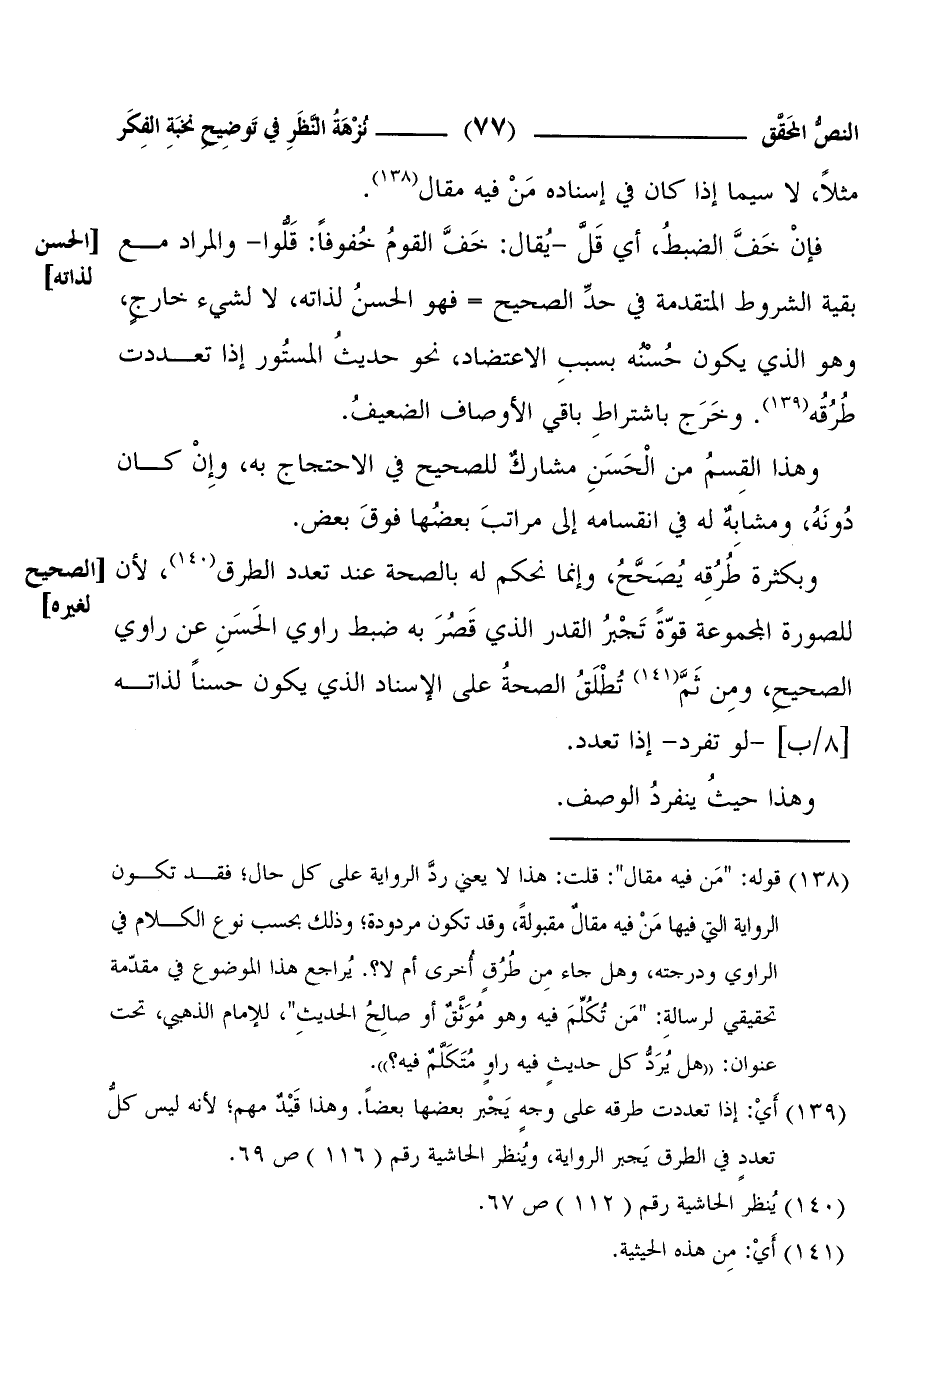 النصُّ المحَقَّق ـــــــــــــــــ (٧٧) ـــــــــ نُزْهَةُ النَّظَرِ في تَوضِيحِ نخبَةِ الفِكَر
مثلاً، لا سيما إذا كان في إسناده مَنْ فيه مقال(١٣٨).
فإنْ خَفَّ الضبطُ، أي قَلَّ -يُقال: خَفَّ القومُ خُفوفاً: قَلُّوا- والمراد مـــع [الحسن
لذاته]
بقية الشروط المتقدمة في حدِّ الصحيح = فهو الحسنُ لذاته، لا لشيء خارجٍ،
وهو الذي يكون حُسْنُه بسببِ الاعتضاد، نحو حديثُ المستُور إذا تعـــددت
طُرُقُه(١٣٩). وخَرَج باشتراطِ باقي الأوصاف الضعيفُ.
وهذا القِسمُ من الْحَسَنِ مشاركٌ للصحيح في الاحتجاج به، وإنْ كـــان
دُونَهُ، ومشابِهٌ له في انقسامه إلى مراتبَ بعضُها فوقَ بعض.
وبكثرة طُرُقِه يُصَحَّحُ، وإنما نحكم له بالصحة عند تعدد الطرق(١٤٠)، لأن [الصحيح
لغيره]
للصورة المجموعة قوّةً تَجْبرُ القدر الذي قَصُرَ به ضبط راوي الحَسَنِ عن راوي
الصحيحِ، ومِن ثَمَّ(١٤١) تُطْلَقُ الصحةُ على الإسناد الذي يكون حسناً لذاتـــه
[٨/ب] -لو تفرد- إذا تعدد.
وهذا حيثُ ينفردُ الوصف.
(١٣٨) قوله: "مَن فيه مقال": قلت: هذا لا يعني ردَّ الرواية على كل حال؛ فقـــد تكـــون
الرواية التي فيها مَنْ فيه مقالٌ مقبولةً، وقد تكون مردودة؛ وذلك بحسب نوع الكـــلام في
الراوي ودرجته، وهل جاء مِن طُرُقٍ أُخرى أم لا؟. يُراجع هذا الموضوع في مقدّمة
تحقيقي لرسالة: "مَن تُكُلِّمَ فيه وهو مُوَثَّقٌ أو صالِحُ الحديثِ"، للإمام الذهبي، تحت
عنوان: «هل يُرَدُّ كل حديثٍ فيه راوٍ مُتَكَلَّمٌ فيه؟».
(١٣٩) أَيْ: إذا تعددت طرقه على وجهٍ يَجْبر بعضها بعضاً. وهذا قَيْدٌ مهم؛ لأنه ليس كلُّ
تعددٍ في الطرق يَجبر الرواية، ويُنظر الحاشية رقم ( ١١٦ ) ص ٦٩.
(١٤٠) يُنظر الحاشية رقم ( ١١٢ ) ص ٦٧.
(١٤١) أَيْ: مِن هذه الحيثية.